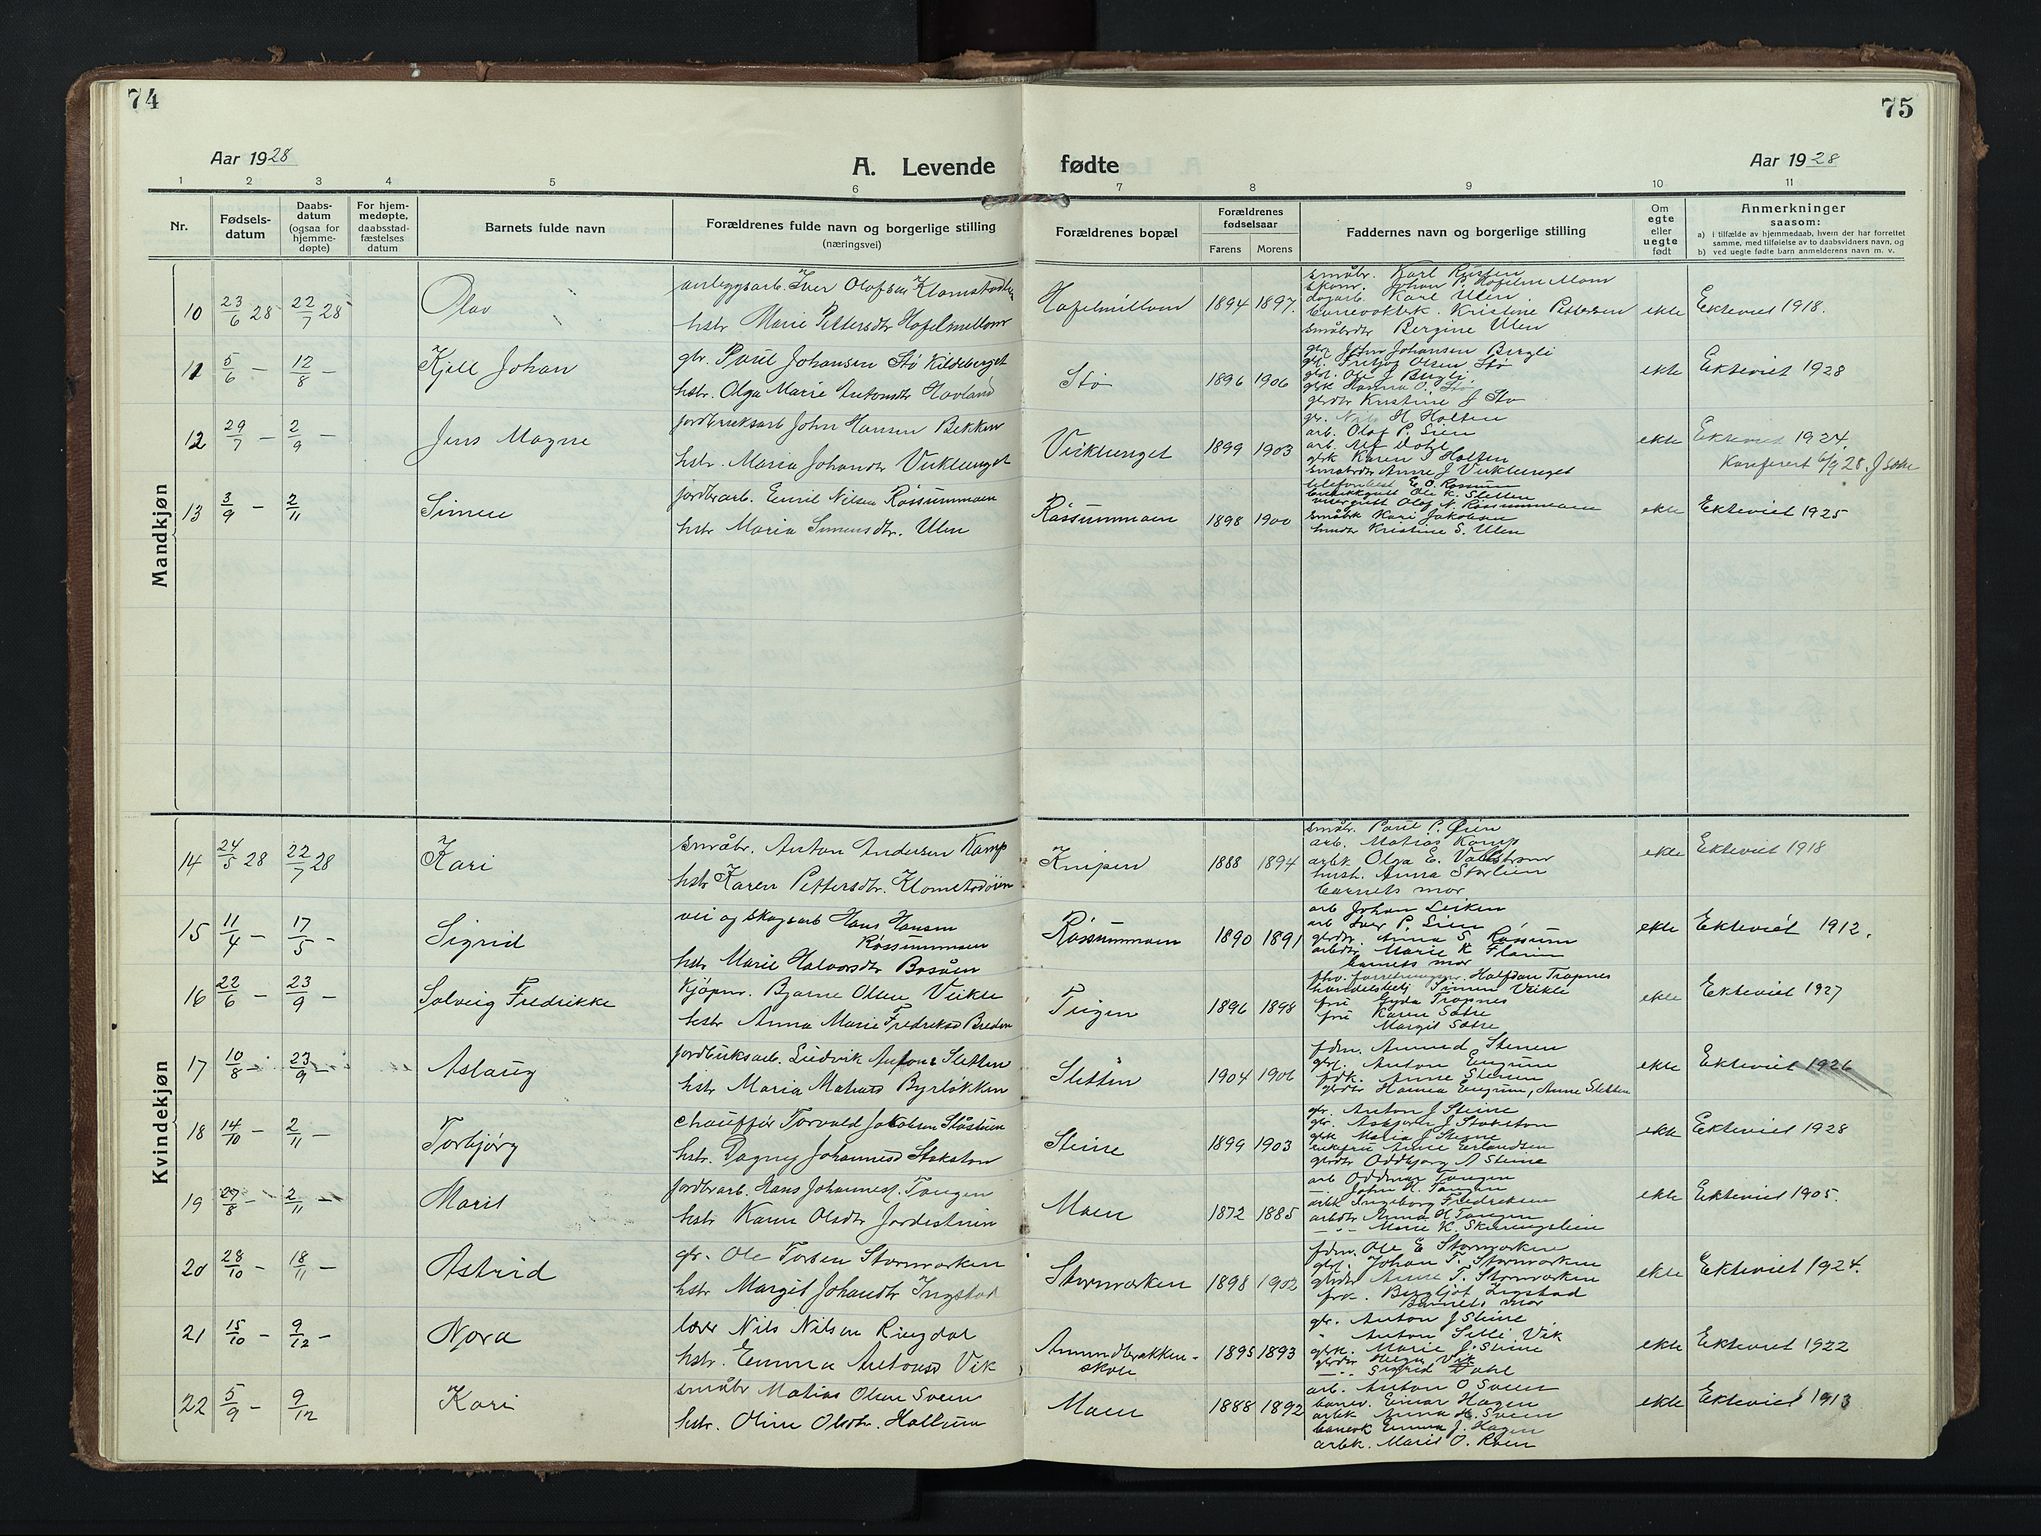 74
75
Aar 1928
A. Levende fødte
Aar 1928
1 2 3 4 5 6 7 8 9 10 11
Nr.
Fødsels-
datum
Daabs-
datum
(ogsaa for
hjemme-
døpte)
For hjem-
medøpte,
daabsstad-
fæstelses
datum
Barnets fulde navn
Forældrenes fulde navn og borgerlige stilling
(næringsvei)
Forældrenes bopæl
Forældrenes
fødselsaar
Farens Morens
Faddernes navn og borgerlige stilling
Om
egte
eller
uegte
født
Anmerkninger
saasom:
a) i tilfælde av hjemmedaab, hvem der har forrettet
samme, med tilføielse av to daabsvidners navn, og
b) ved uegte fødte barn anmelderens navn m. v.
Mandkjøn
10 23/6 28 22/7 28 Olav
anleggsarb. Iver Olofsen
hstr Marie Pettersdtr
1894 1897.
småbr. Karl
Karl Ulen
Kristine Pettersen
småbrdtr Bergine Ulen
ekte Ekteviet 1918.
11 5/6 – 12/8 – Kjell Johan
gbr. Paul Johansen Stø Kildeberget
hstr. Olga Marie Antonsdtr Hovland
Stø 1896 1906
gbr. John Johansen Bergli
Fritjof Olsen Stø
Ole J Bergli
Hanna O. Stø
gbrdtr Kristine J Stø
ekte Ekteviet 1928
12 29/7 – 2/9 – Jens Magne
jordbruksarb John Hansen Bekken
hstr. Maria Johansdtr Veiklunget
1899 1903
H Holten
arb. Olaf P. Lien
arb. Alf Dahl
Karen Holten
småbrdtr Anne J
ekte Ekteviet 1924.
Konferert 6/9 28.
13 3/9 – 2/11 Simen
jordbrarb. Emil Nilsen Røssummoen
hstr Maria Simensdtr. Ulen
Røssummoen 1898 1900
E. O. Rossum
Ole K. Sletten
Olaf N. Røssummoen
småbk Kari Jakobsen
Kristine S. Ulen
ekte Ekteviet 1925
Kvindekjøn
14 24/5 28 22/7 28 Kari
småbr. Anton Andersen Kamp
hstr Karen Pettersdtr.
Knipen 1888 1894
småbr. Paul P. Øien
arb. Matias Kamp
arbk Olga E.
hush. Anna Storlien
barnets mor
ekte Ekteviet 1918
15 11/4 – 17/5 – Sigrid
vei og skogsarb Hans Hansen
Røssummoen
hstr. Marie Halvorsdtr Bosåen
Røssummoen 1890 1891
arb Johan Leiken
arb Iver P. Lien
gbrdtr. Anna S. Røssum
arbeidr Marie K
barnets mor
ekte Ekteviet 1912.
16 22/6 – 23/9 – Solveig Fredrikke
kjøpm. Bjarne Olsen Veikle
hstr Anna Marie Fredriksd Breden
Teigen 1896 1898
Halfdan Trapnes
handelsbetj Simen Veikle
fru Gyda Trapnes
frk Karen Sætre
Margit Sætre
ekte Ekteviet 1927
17 10/8 – 23/9 – Aslaug
jordbruksarb. Ludvik Antons Sletten
hstr Maria Matiasd Byrløkken
Sletten 1904 1906
fdm. Amund Stenen
gbr. Anton Engum
fdk. Anne Stenen
gbrdtr Hanna Engum, Anne Sletten
ekte Ekteviet 1926
18 14/10 – 2/11 – Torbjørg
chauffør Torvald Jakobsen
hstr. Dagny Johannesd Stokstøn
Steine 1899 1903
gbr. Anton J Steine
gbr. Asbjørn J Stokstøn
gbk Maria J Steine
enkefru Anne Erlandsen
gbrdtr Oddbjørg A Steine
ekte Ekteviet 1928
19 27/8 – 2/11 – Marit
jordbrarb. Hans Johannesf. Tangen
hstr Karen Olsdtr
Moen 1872 1885
arb Oddmar Tangen
–..– John H. Tangen
arbk Ingeborg Fredriksen
arbeidtr Anna H Tangen
Marie K.
ekte Ektevied 1905.
20 28/10 – 18/11 – Astrid
gbr. Ole Torsen Stormorken
hstr Margit Johansdtr Ingstad
Stormorken 1898 1902
fdm. Ole E Stormorken
gbr. Johan T. Stormorken
gbrdtr Anne T. Stormorken
frk. Bergljot Ingstad
barnets mor
ekte Ektevied 1924.
21 15/10 – 9/12 – Nora
lærer Nils Nilsen Ringdal
hstr. Emma Antonsd Vik
Amundbrækken-
skole
1895 1893
gbr. Anton J Steine
Anton Vik
gbrk. Marie J. Steine
Sigrid Dahl
ekte Ektevied 1922
22 5/9 – 9/12 Kari
småbr Matias Olsen Sveen
hstr. Oline Olsdtr. Hallum
Moen 1888 1892
arb. Anton O Sveen
banev. Einar Hagen
arbk Anna M. Sveen
banevk Emma J. Hagen
arbk. Marit O. Roen
ekte Ektevied 1913